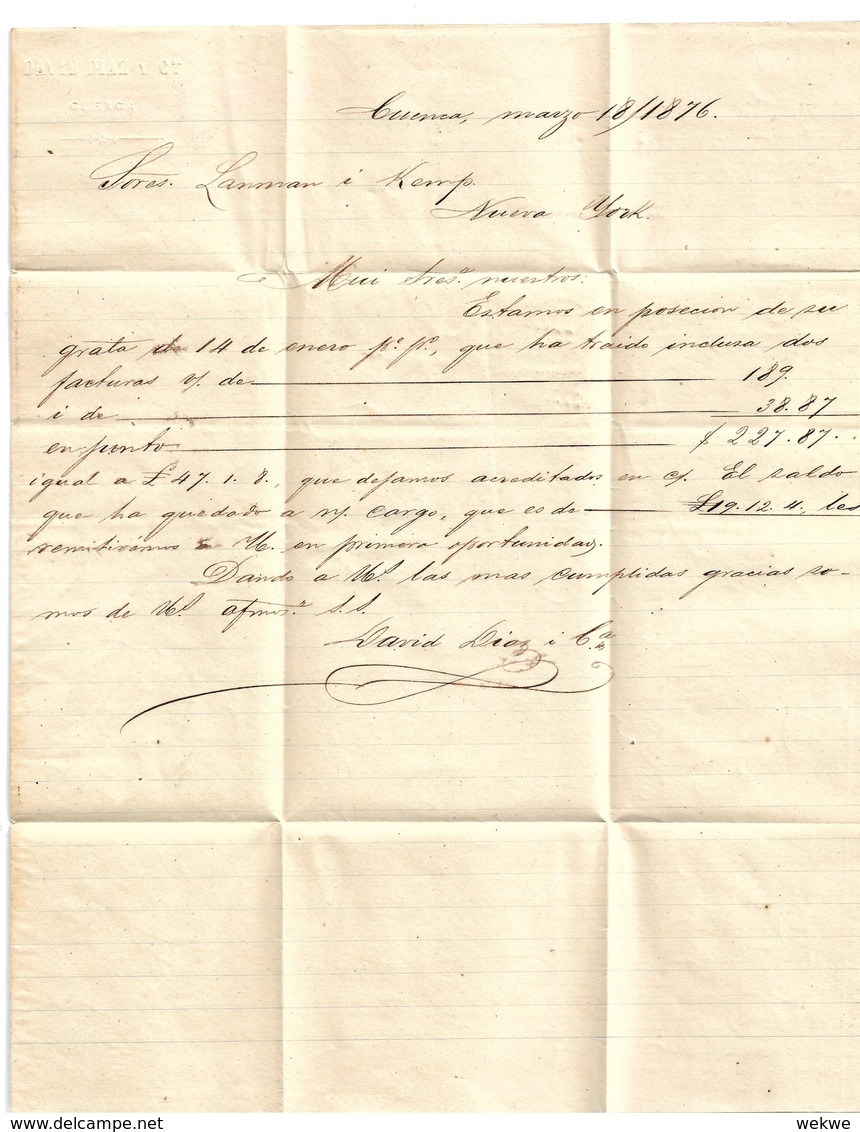 DAVID DIAZ Y Cia
CUENCA
Cuenca, marzo 18/1876.
Sores. Lanman i Kemp.
Nueva York.
Mui Sres. nuestros:
Estamos en posecion de su
grata de 14 de enero po. po., que ha traido inclusa dos
facturas v/. de 189.
i de 38.87
en junto $ 227.87..
igual a £47.1.8., que dejamos acreditados en c/. El saldo
que ha quedado a n/. cargo, que es de £19.12.4., les
remitirémos a U. en primera oportunidad.
Dando a Us. las mas cumplidas gracias so-
mos de Us. afmos. S.S.
David Diaz i Ca.
www.delcampe.net
wekwe